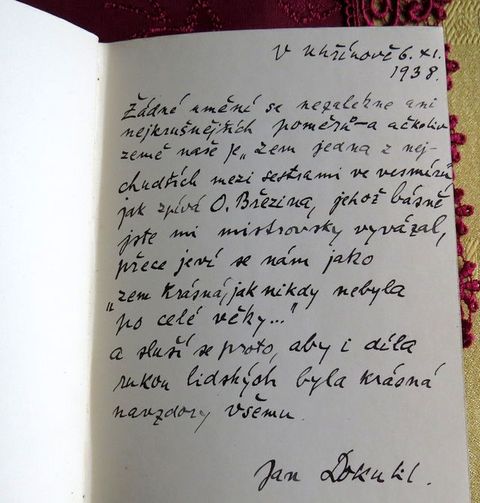 V Uhřínově 6. XI.
1938.
Žádné umění se nezalekne ani
nejkrušnějších poměrů – a ačkoliv
země naše je „zem jedna z nej-
chudších mezi sestrami ve vesmíru“
jak zpívá O. Březina, jehož básně
jste mi mistrovsky vyvázal,
přece jeví se nám jako
„zem krásná, jak nikdy nebyla
po celé věky..."
a sluší se proto, aby i díla
rukou lidských byla krásná
navzdory všemu.
Jan Dokulil.